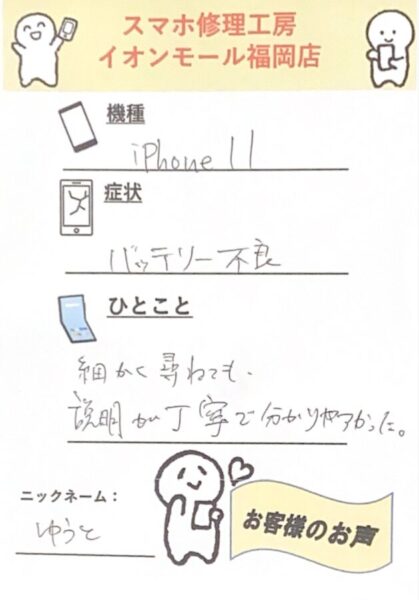 スマホ修理工房
イオンモール福岡店
機種
iPhone 11
症状
バッテリー不良
ひとこと
細かく尋ねても、
説明が丁寧で分かりやすかった。
ニックネーム：
ゆうと
お客様のお声